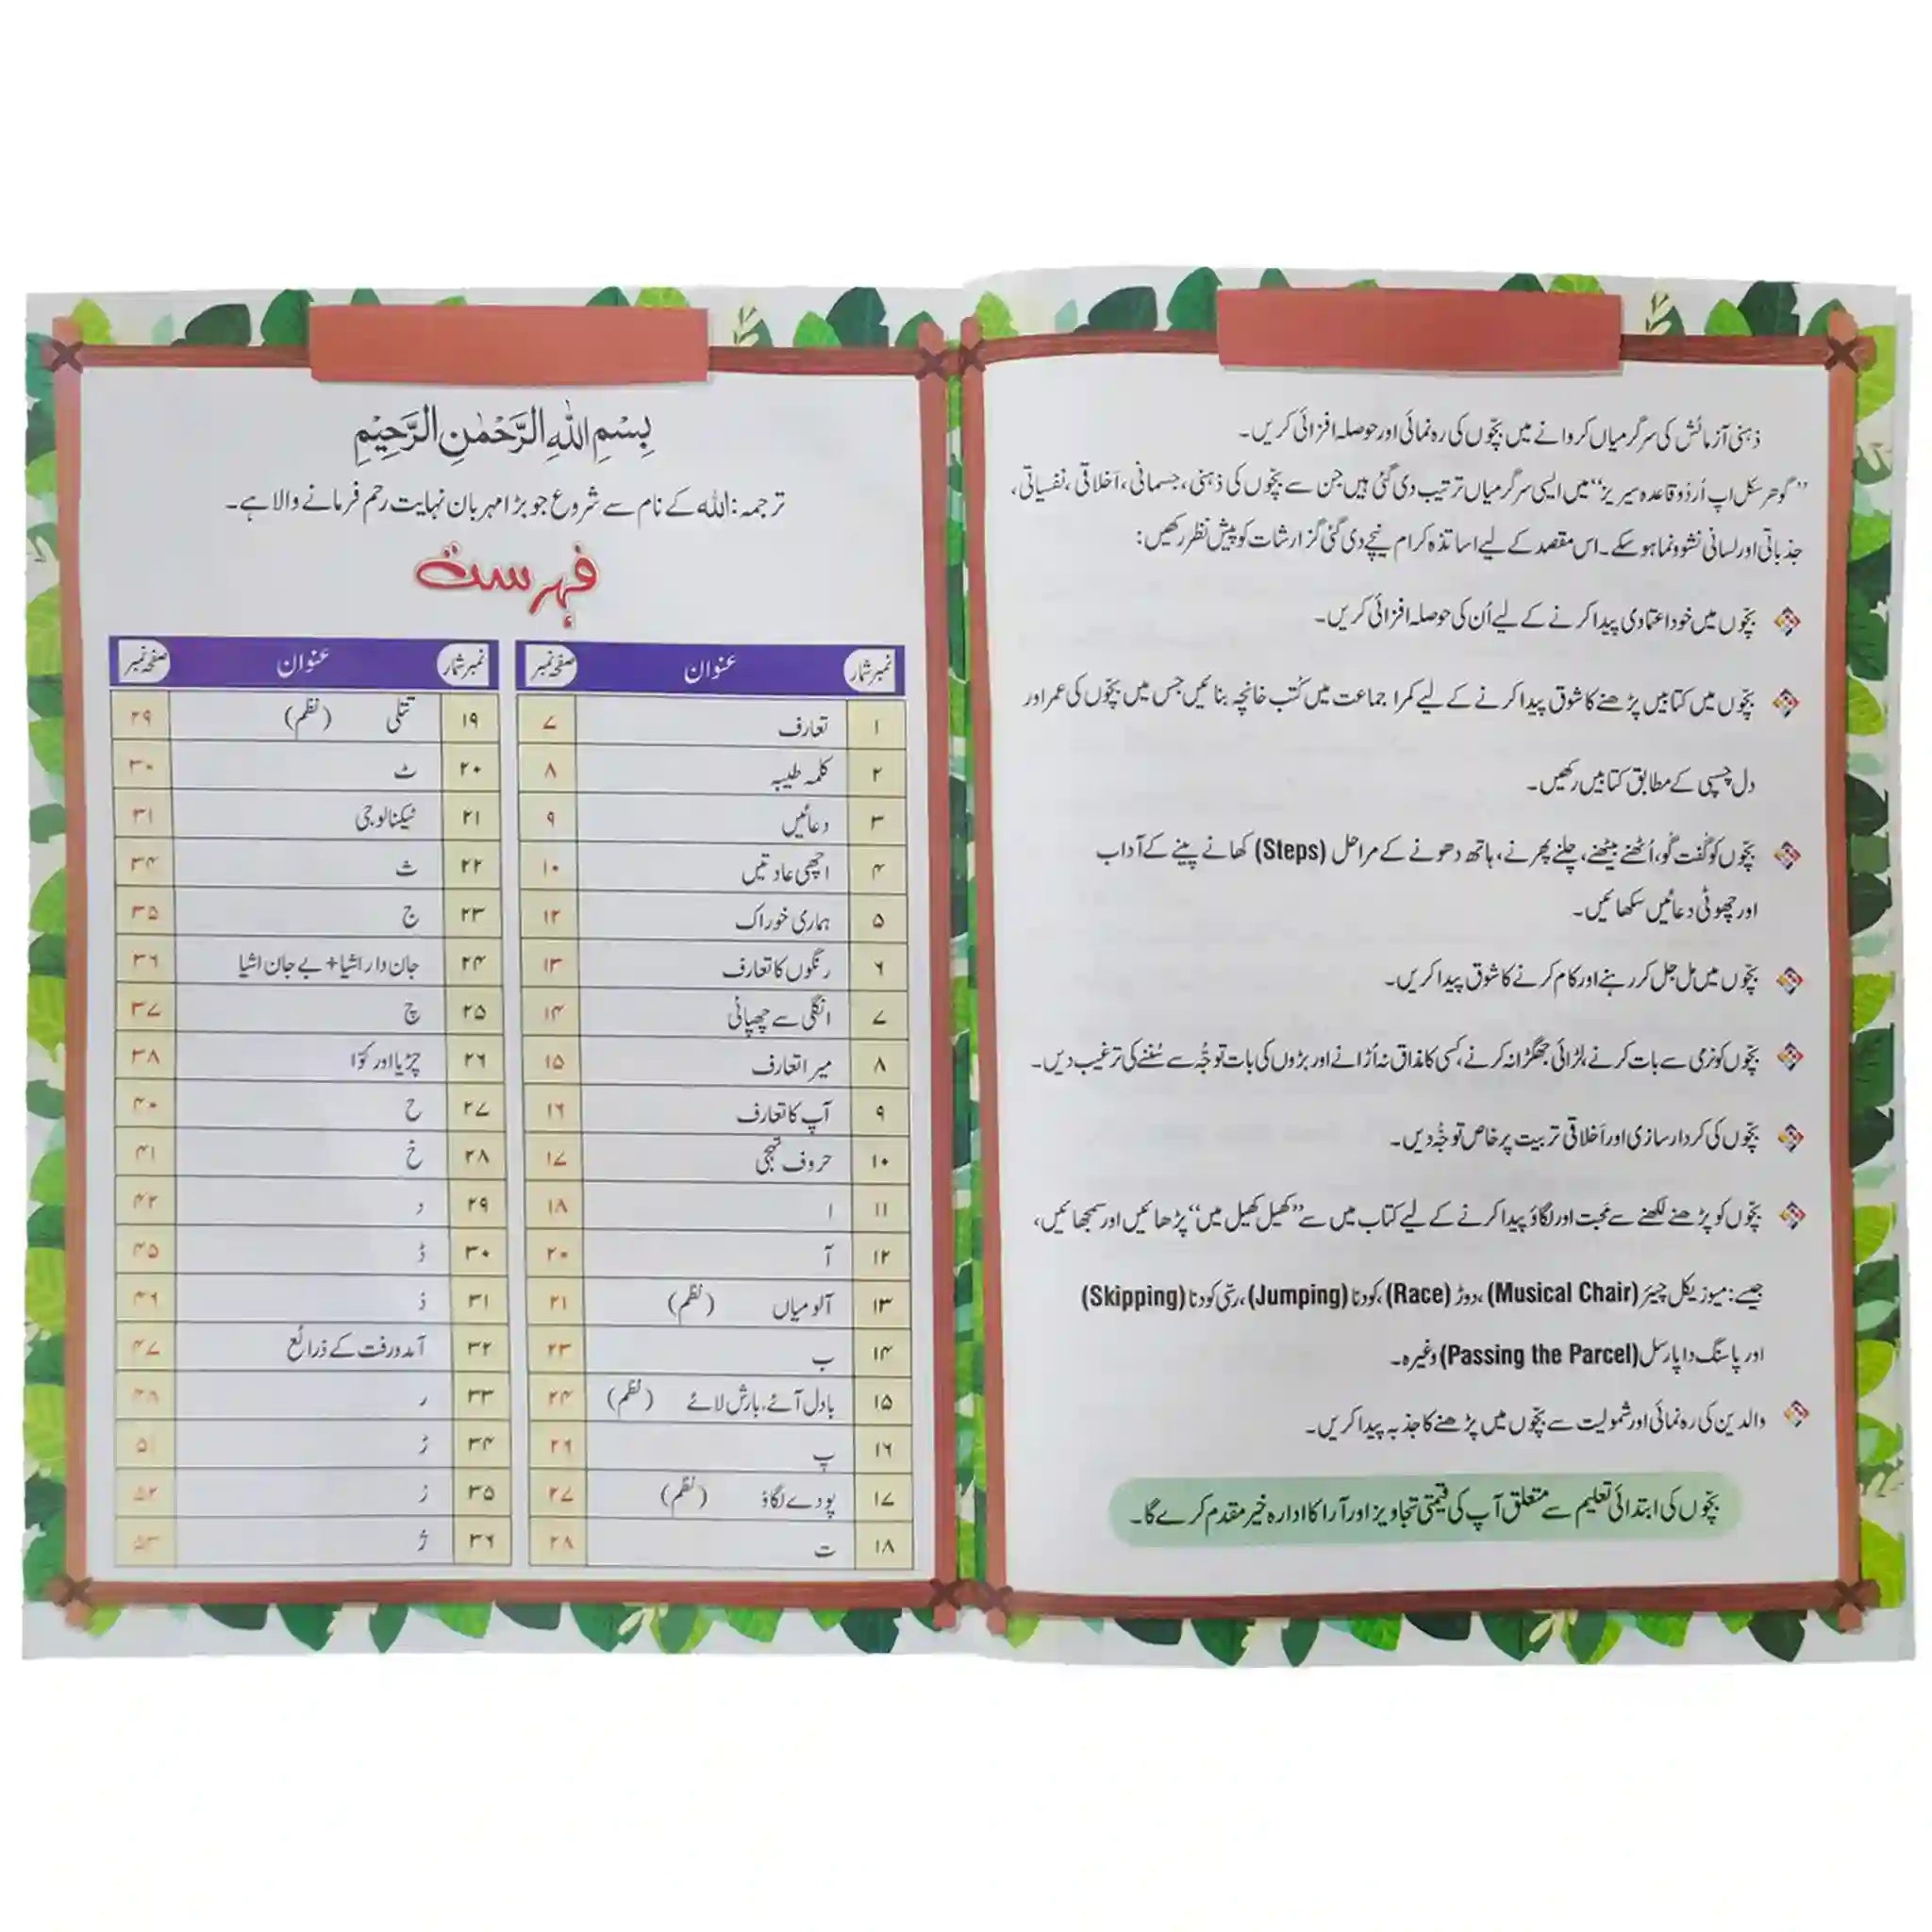 ذہنی آزمائش کی سرگرمیاں کروانے میں بچّوں کی رہ نمائی اور حوصلہ افزائی کریں۔
”گوھر سکل اپ اُردُو قاعدہ سیریز“ میں ایسی سرگرمیاں ترتیب دی گئی ہیں جن سے بچّوں کی ذہنی، جسمانی، اَخلاقی، نفسیاتی،
جذباتی اور لسانی نشوونما ہو سکے۔ اس مقصد کے لیے اساتذہ کرام نیچے دی گئی گزارشات کو پیشِ نظر رکھیں:
بچّوں میں خود اعتمادی پیدا کرنے کے لیے اُن کی حوصلہ افزائی کریں۔
بچّوں میں کتابیں پڑھنے کا شوق پیدا کرنے کے لیے کمرا جماعت میں کُتب خانچہ بنائیں جس میں بچّوں کی عمر اور
دل چسپی کے مطابق کتابیں رکھیں۔
بچّوں کو گُفت گُو، اُٹھنے بیٹھنے، چلنے پھرنے، ہاتھ دھونے کے مراحل (Steps) کھانے پینے کے آداب
اور چھوٹی دعائیں سکھائیں۔
بچّوں میں مل جل کر رہنے اور کام کرنے کا شوق پیدا کریں۔
بچّوں کو نرمی سے بات کرنے، لڑائی جھگڑا نہ کرنے، کسی کا مذاق نہ اُڑانے اور بڑوں کی بات توجُّہ سے سُننے کی ترغیب دیں۔
بچّوں کی کردار سازی اور اَخلاقی تربیت پر خاص توجُّہ دیں۔
بچّوں کو پڑھنے لکھنے سے محبت اور لگاؤ پیدا کرنے کے لیے کتاب میں سے ”کھیل کھیل میں“ پڑھائیں اور سمجھائیں،
جیسے: میوزیکل چیئر (Musical Chair)، دوڑ (Race)، کودنا (Jumping)، رسّی کودنا (Skipping)
اور پاسنگ دا پارسل (Passing the Parcel) وغیرہ۔
والدین کی رہ نمائی اور شمولیت سے بچّوں میں پڑھنے کا جذبہ پیدا کریں۔
بچّوں کی ابتدائی تعلیم سے متعلق آپ کی قیمتی تجاویز اور آرا کا ادارہ خیر مقدم کرے گا۔
بِسْمِ اللّٰهِ الرَّحْمٰنِ الرَّحِيْمِ
ترجمہ: اللہ کے نام سے شروع جو بڑا مہربان نہایت رحم فرمانے والا ہے۔
فہرست
نمبر شمار عنوان صفحہ نمبر
۱ تعارف ۷
۲ کلمہ طیبہ ۸
۳ دعائیں ۹
۴ اچھی عادتیں ۱۰
۵ ہماری خوراک ۱۲
۶ رنگوں کا تعارف ۱۳
۷ انگلی سے چھپائی ۱۴
۸ میرا تعارف ۱۵
۹ آپ کا تعارف ۱۶
۱۰ حروف تہجی ۱۷
۱۱ ا ۱۸
۱۲ آ ۲۰
۱۳ آلو میاں (نظم) ۲۱
۱۴ ب ۲۳
۱۵ بادل آئے، بارش لائے (نظم) ۲۴
۱۶ پ ۲۶
۱۷ پودے لگاؤ (نظم) ۲۷
۱۸ ت ۲۸
نمبر شمار عنوان صفحہ نمبر
۱۹ تتلی (نظم) ۲۹
۲۰ ٹ ۳۰
۲۱ ٹیکنالوجی ۳۱
۲۲ ث ۳۴
۲۳ ج ۳۵
۲۴ جان دار اشیا + بے جان اشیا ۳۶
۲۵ چ ۳۷
۲۶ چڑیا اور کوّا ۳۸
۲۷ ح ۴۰
۲۸ خ ۴۱
۲۹ د ۴۲
۳۰ ڈ ۴۵
۳۱ ذ ۴۶
۳۲ آمدورفت کے ذرائع ۴۷
۳۳ ر ۴۸
۳۴ ڑ ۵۱
۳۵ ز ۵۲
۳۶ ژ ۵۳